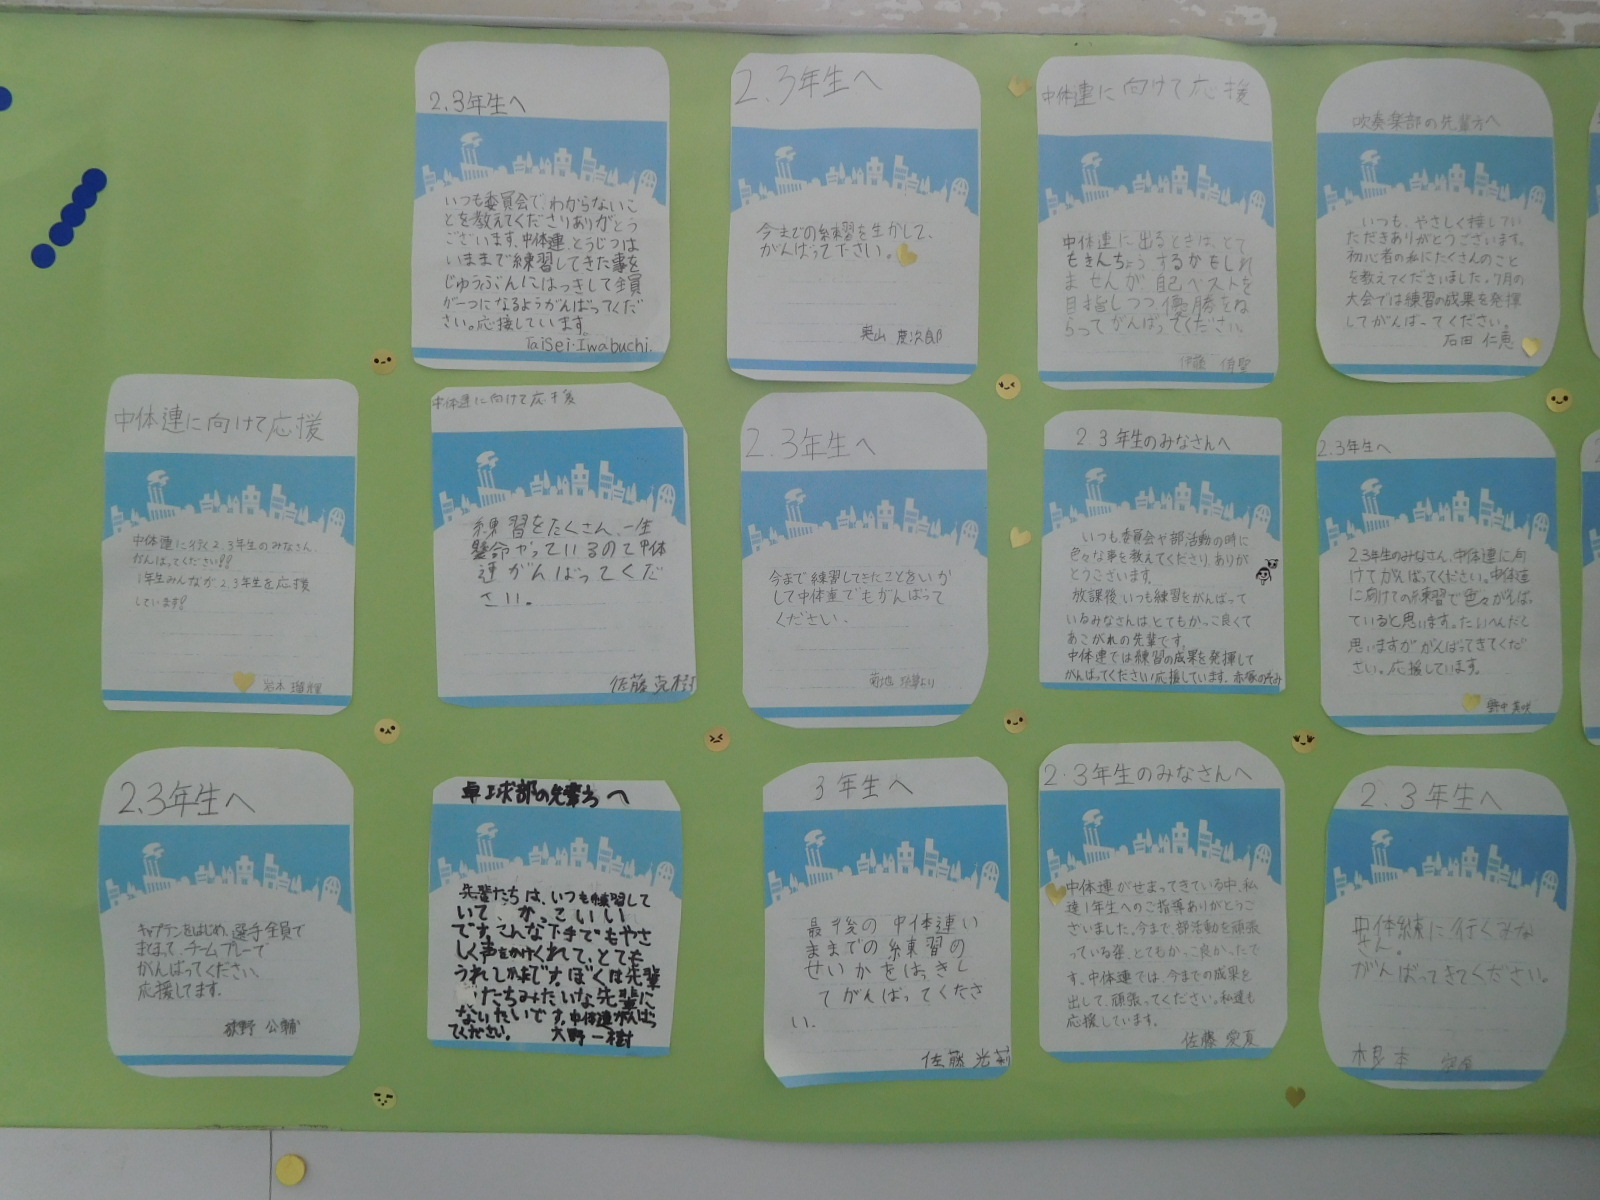 2.3年生へ
いつも委員会で、わからないこ
とを教えてくださりありがとう
ございます。中体連、とうじつは
いままで練習してきた事を
じゅうぶんにはっきして全員
が一つになるようがんばってくだ
さい。応援しています。
Taisei.Iwabuchi.
2.3年生へ
今までの練習を生かして、
がんばって下さい。
中体連に向けて応援
中体連に出るときは、とて
もきんちょうするかもしれ
ませんが自己ベストを
目指しつつ優勝をね
らってがんばってください。
伊藤
吹奏楽部の先輩方へ
いつも、やさしく接してい
ただきありがとうございます。
初心者の私にたくさんのこと
を教えてくださいました。7月の
大会では練習の成果を発揮
してがんばってください。
石田 仁恵
中体連に向けて応援
中体連に行く2.3年生のみなさん、
がんばってください!!
1年生みんなが2.3年生を応援
しています!
岩本
中体連に向けて応援
練習をたくさん、一生
懸命やっているので中体
連がんばってくだ
さい。
佐藤 克樹
2.3年生へ
今まで練習してきたことをいか
して中体連でもがんばって
ください。
菊地
2.3年生のみなさんへ
いつも委員会や部活動の時に
色々な事を教えてくださり、ありが
とうございます。
放課後いつも練習をがんばって
いるみなさんはとてもかっこ良くて
あこがれの先輩です。
中体連では練習の成果を発揮して
がんばってください!応援しています。赤塚のぞみ
2.3年生へ
2.3年生のみなさん、中体連に向
けてがんばってください。中体連
に向けての練習で色々がんば
ていると思います。たいへんだと
思いますが がんばってきてくだ
さい。応援しています。
野中
2.3年生へ
キャプテンをはじめ、選手全員で
まとまって、チームプレーで
がんばってください。
応援してます。
野 公輔
卓球部の先輩方へ
先輩たちは、いつも練習して
いて、かっこいい
です。こんな下手でもやさ
しく声をかけくれて、とても
うれしかたです。ぼくは先輩
たちみたいな先輩に
なりたいです。中体連がんばっ
てください。 大野 一樹
3年生へ
最後の中体連い
ままでの練習の
せいかをはっきし
てがんばってくださ
い.
佐藤 光莉
2.3年生のみなさんへ
中体連がせまってきている中、私
達1年生へのご指導ありがとうご
ざいました。今まで、部活動を頑張
っている姿、とてもかっこ良かったで
す。中体連では、今までの成果を
出して、頑張ってください。私達も
応援しています。
佐藤 愛夏
2.3年生へ
中体練に行くみな
さん。
がんばってきてください。
根本